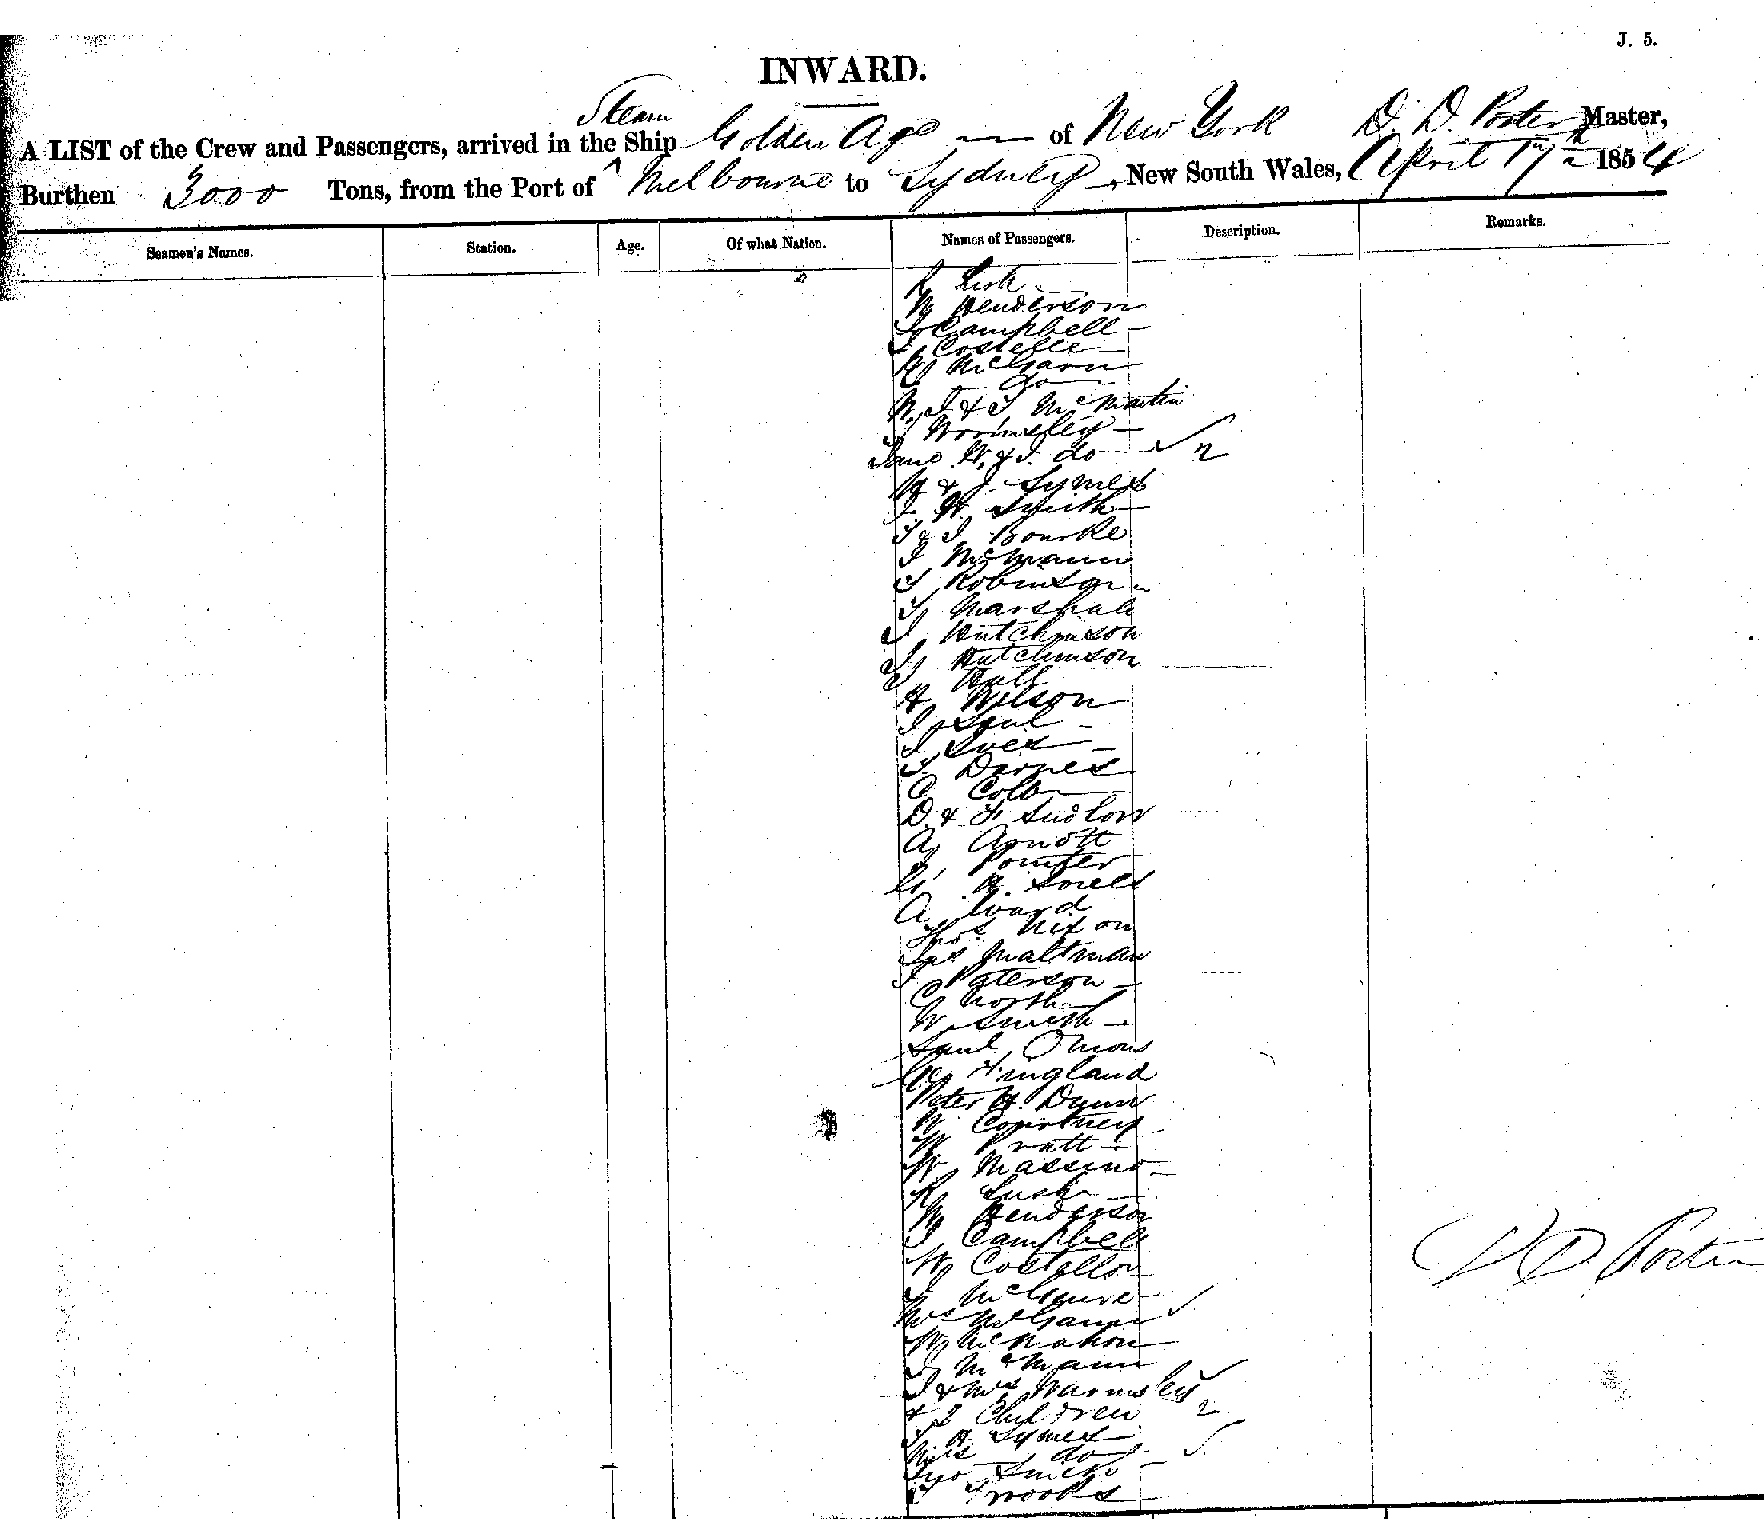 J. 5.
INWARD.
Steam
A LIST of the Crew and Passengers, arrived in the Ship Golden Age — of New York D. D. Porter Master,
Burthen 3000 Tons, from the Port of ^ Melbourne to Sydney, New South Wales, April 17th 1854
Seamen's Names. Station. Age. Of what Nation. Names of Passengers. Description. Remarks.
R Lusk
W Henderson
Campbell
Costello
McGann
do
W, J & J McMartin
Wormsley
Jane W, & J. do 2
& J. Symes
J W Smith
J & J Bourke
J McMann
J Robinson
J Marshall
J Hutchinson
J Hutchinson
Hall
H Wilson
J Saul
J Ives
J Barnes
C Colb
D & F Ludlow
A Arnott
Pointer
H.
A Ward
Thos Nixon
Jas Maltman
J Paterson
C North
W Smith
Saml Onions
Kingland
Peter H. Dunn
W Courtney
W Pratt
W Massino
R Lusk
W Henderson
J Campbell
W Costello
J McGuire
Mrs McGann
W McMahon
J McMann
J & Mrs Warmsley
& 2 Children 2
J H Symes
Mrs do
Geo Smith
J Brooks
D D Porter